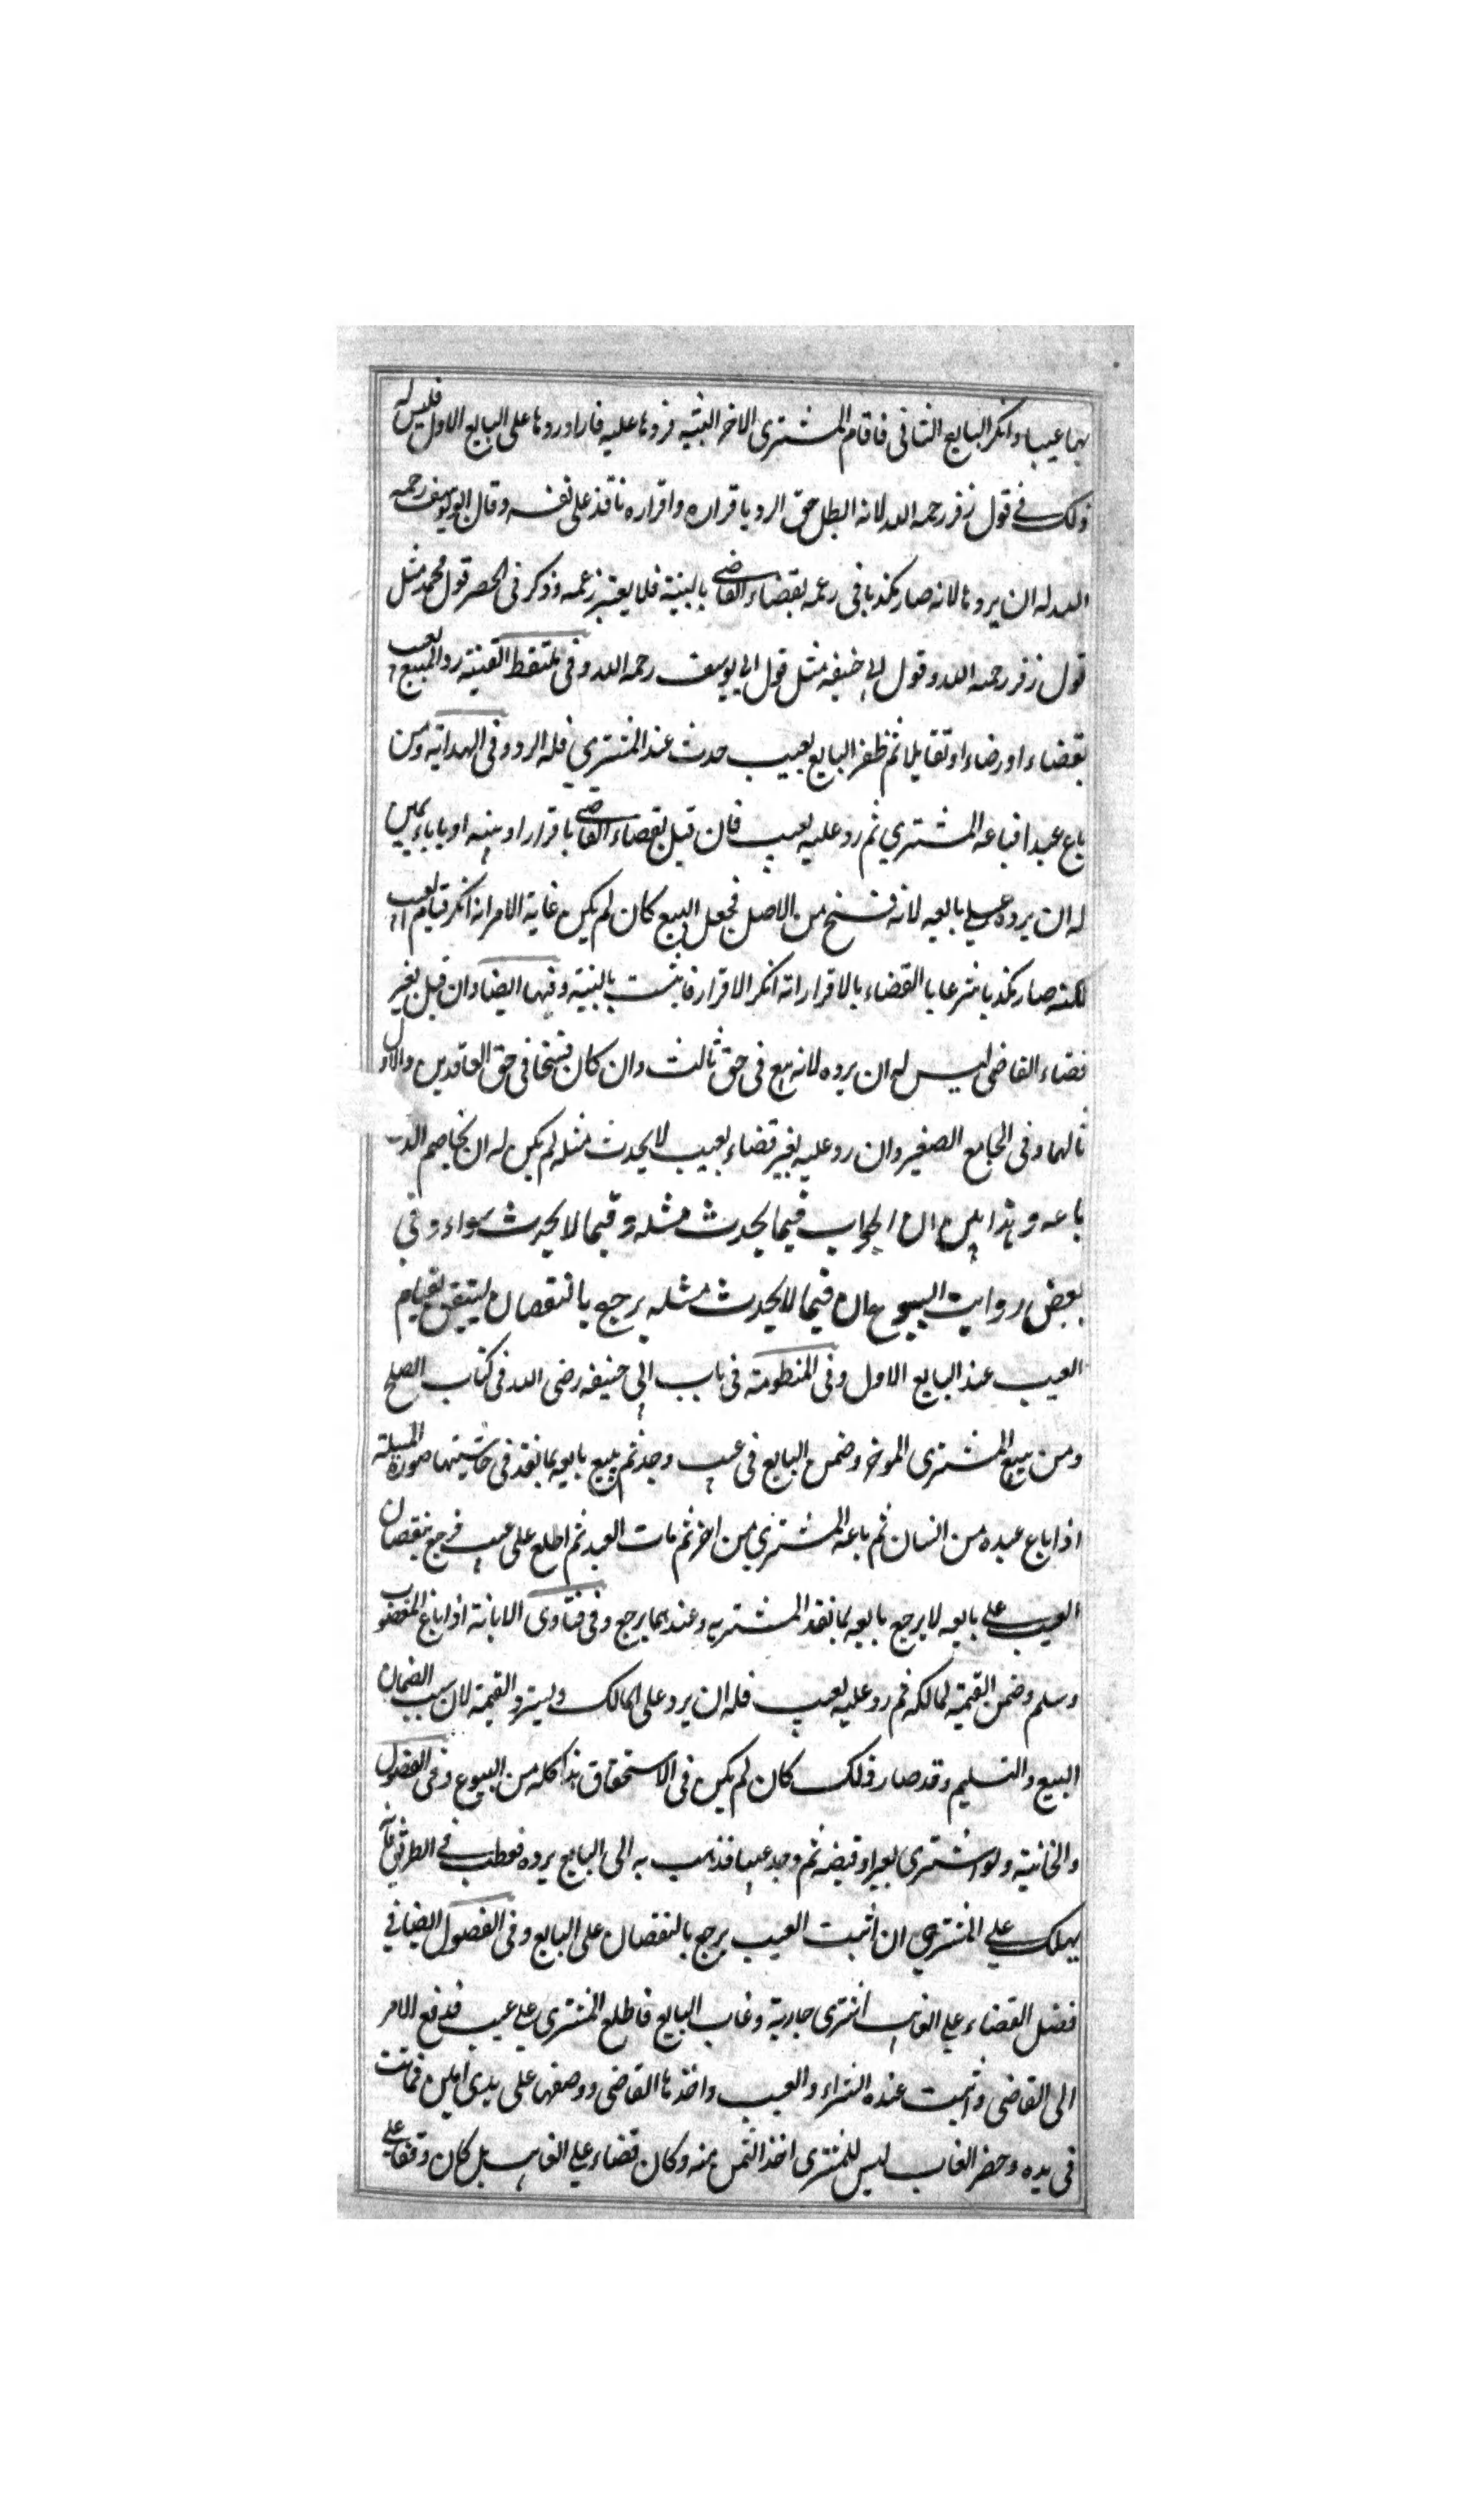 بها عيبا وانكر البايع الثانى فاقام المشترى الاخر البينة فردها عليه فاراد ردها على البايع الاول فليس له
ذلك فى قول زفر رحمه الله لانه ابطل حق الرد باقراره واقراره نافذ على نفسه وقال ابو يوسف رحمه
الله له ان يردها لانه صار مكذبا فى زعمه بقضاء القاضى بالبينة فلا يعتبر زعمه وذكر فى الحصر قول محمد مثل
قول زفر رحمه الله وقول ابى حنيفه مثل قول ابى يوسف رحمه الله وفى ملتقط القنية رد المبيع بعيب
بقضاء او رضاء او تقايلا ثم ظفر البايع بعيب حدث عند المشترى فله الرد وفى الهداية ومن
باع عبدا فباعه المشترى ثم رد عليه بعيب فان قبل بقضاء القاضى باقرار او بينه او باباء يمين
له ان يرده على بايعه لانه فسخ من الاصل فجعل البيع كان لم يكن غاية الامر انه انكر قيام العيب
لكنه صار مكذبا شرعا بالقضاء بالاقرار انه انكر الاقرار فاثبت بالبينة وفيها ايضا وان قبل بغير
قضاء القاضى ليس له ان يرده لانه بيع فى حق ثالث وان كان فسخا فى حق العاقدين والاول
ثالهما وفى الجامع الصغير وان رد عليه بغير قضاء بعيب لا يحدث مثله لم يكن له ان يخاصم الذى
باعه وبهذا يبين ان الجواب فيما يحدث مثله وفيما لا يحدث سواء وفى
بعض روايت البيوع ان فيما لا يحدث مثله يرجع بالنقصان ليتيقن بقيام
العيب عند البايع الاول وفى المنظومة فى باب ابى حنيفه رضى الله فى كتاب الصلح
ومن يبيع المشترى الموخر وضمن البايع فى عيب وجد ثم يبيع بايعه بما نقد فى حاشيتها صورة المسئلة
اذا باع عبده من انسان ثم باعه المشترى من اخر ثم مات العبد ثم اطلع على عيب فرجع بنقصان
العيب على بايعه لا يرجع بايعه بما نقد المشتريه وعندهما يرجع وفى فتاوى الابانة اذا باع المغصوب
وسلم وضمن القيمة لمالكه ثم رد عليه بعيب فله ان يرد على المالك ويسترد القيمة لان سبب الضمان
البيع والتسليم وقد صار ذلك كان لم يكن فى الاستحقاق هذا كله من البيوع وفى الفصول
والخانية ولو اشترى بعيرا وقبضه ثم وجد عيبا فذهب به الى البايع يرده فعطب فى الطريق فانه
يهلك على المشترى ان اثبت العيب يرجع بالنقصان على البايع وفى الفصول ايضا فى
فصل القضاء على الغايب اشترى جارية وغاب البايع فاطلع المشترى على عيب فدفع الامر
الى القاضى واثبت عنده الشراء والعيب واخذها القاضى ووضعها على يدى امين فماتت
فى يده وحضر الغايب ليس للمشترى اخذ الثمن منه وكان قضاء على الغايب بل كان وقفا على